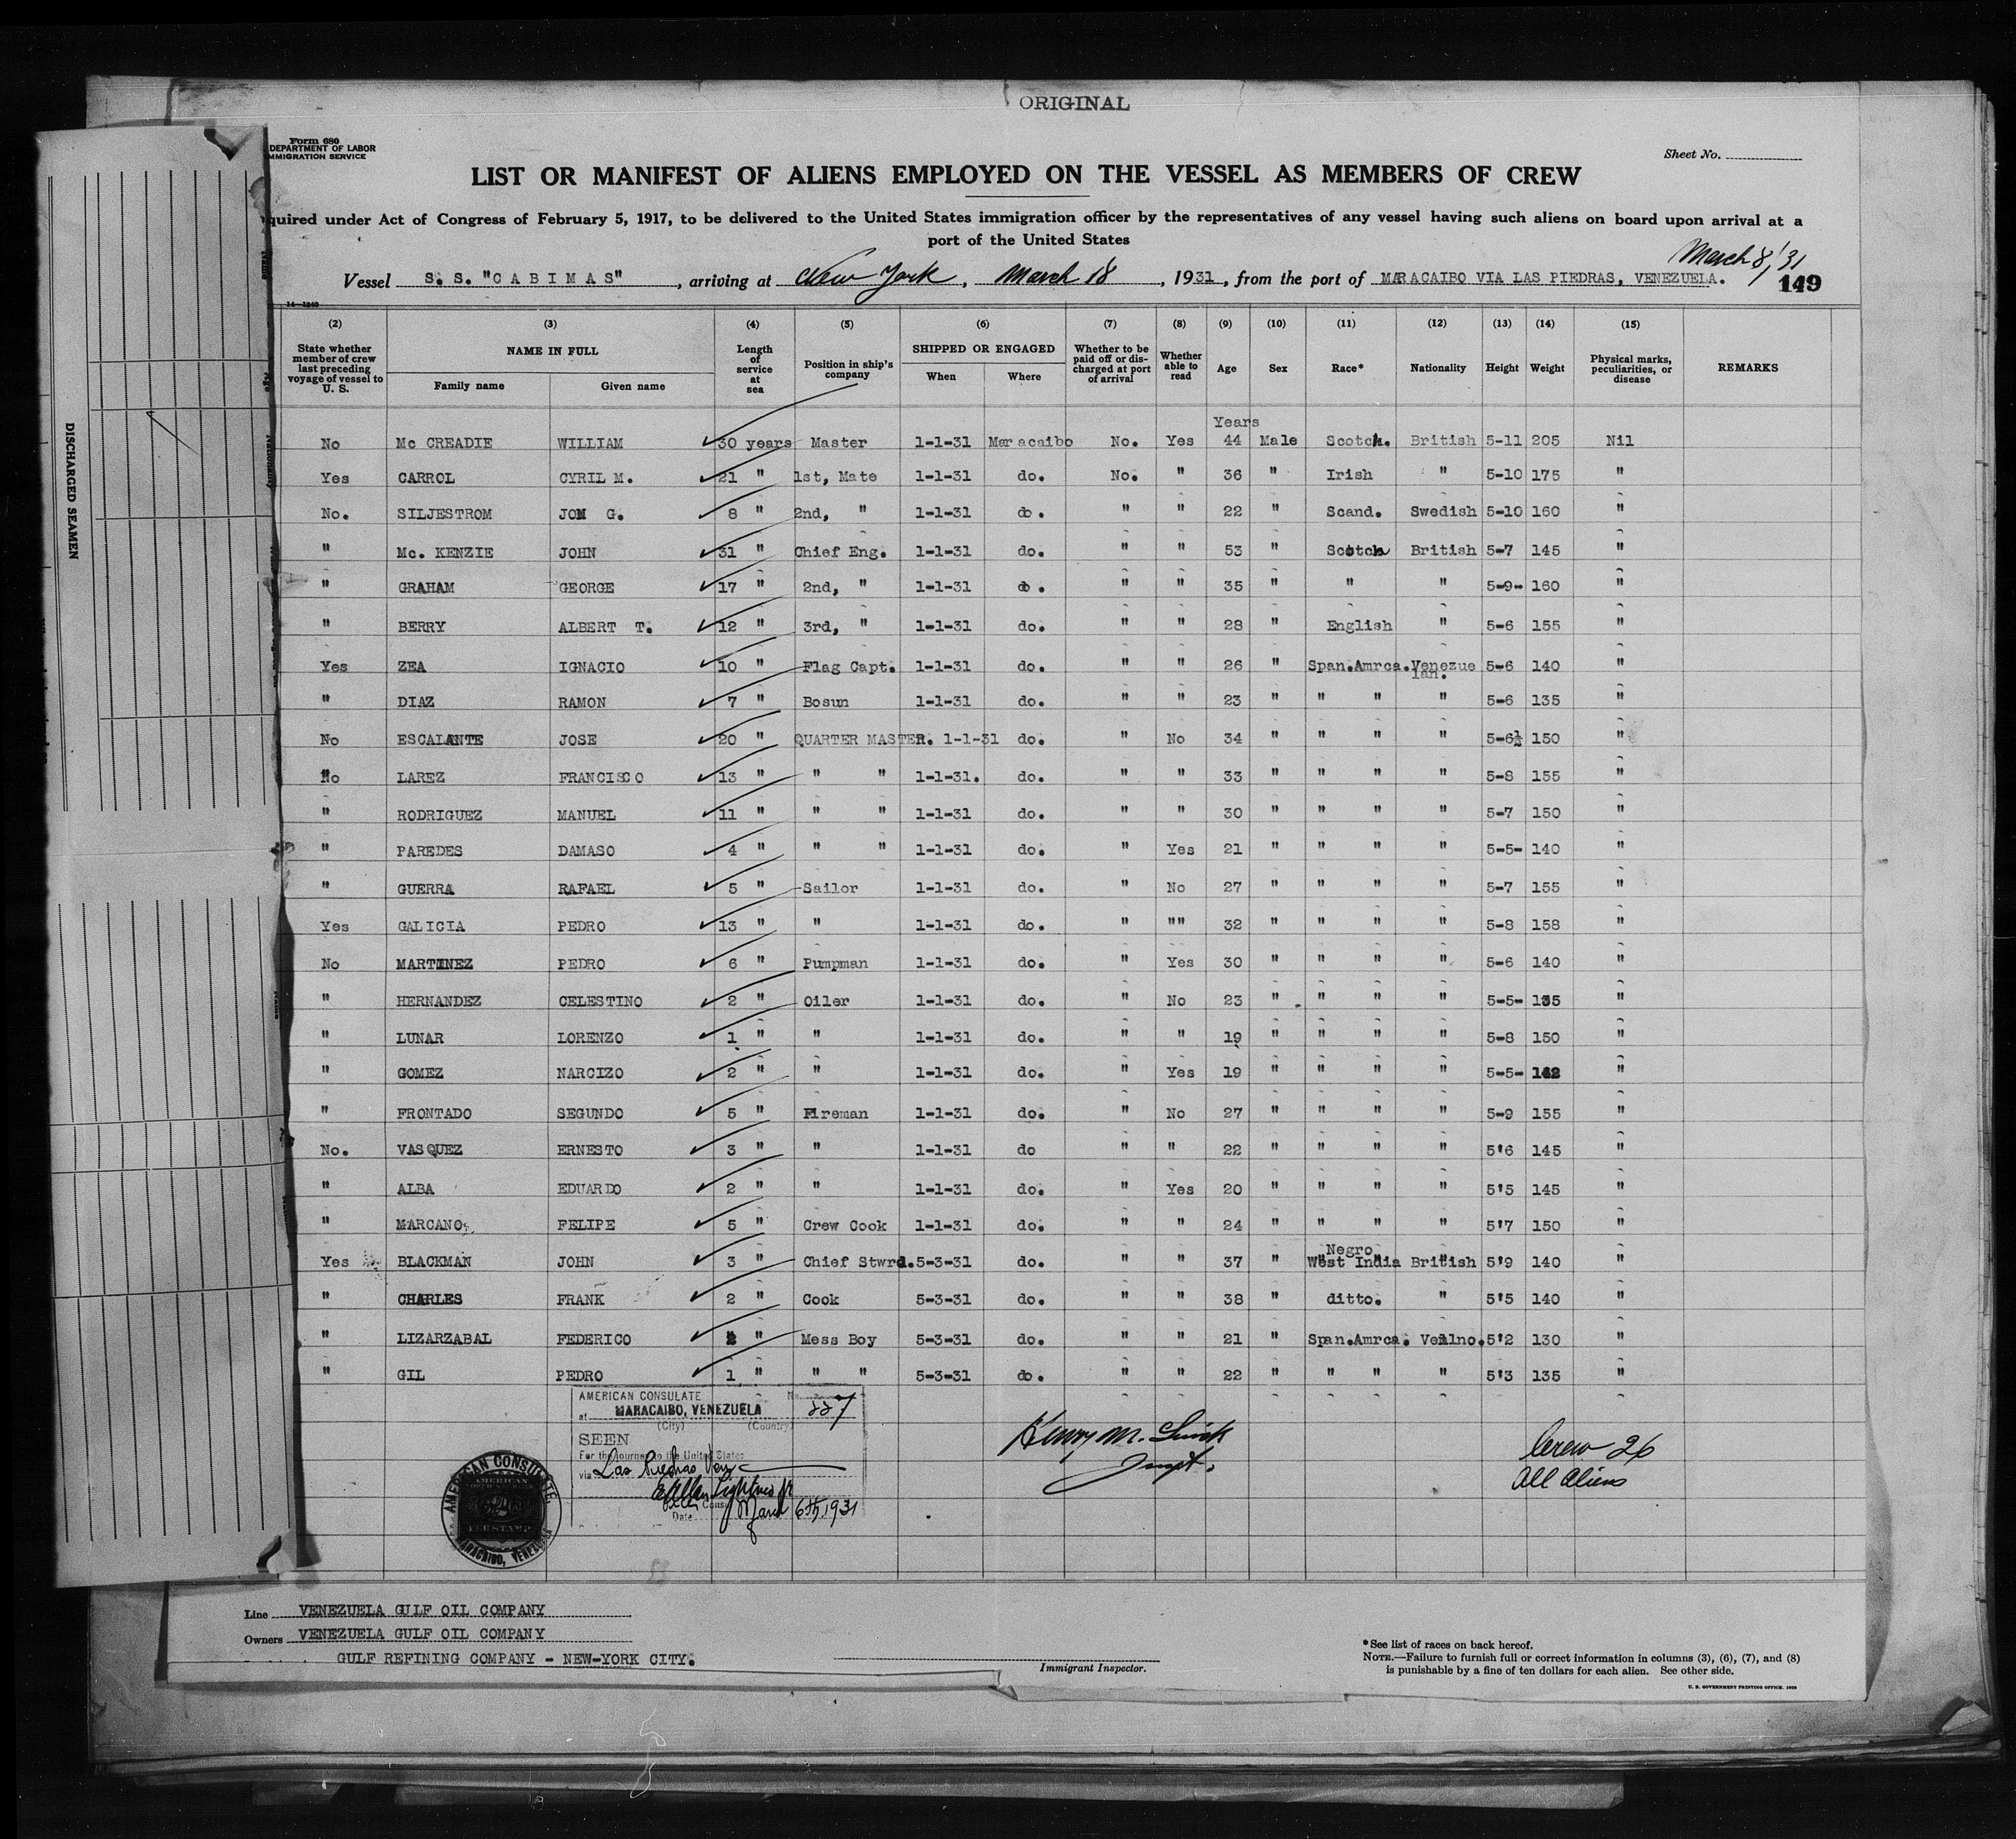 ORIGINAL
Form 680
DEPARTMENT OF LABOR
MMIGRATION SERVICE
Sheet No.
LIST OR MANIFEST OF ALIENS EMPLOYED ON THE VESSEL AS MEMBERS OF CREW
quired under Act of Congress of February 5, 1917, to be delivered to the United States immigration officer by the representatives of any vessel having such aliens on board upon arrival at a
port of the United States
March 8, '31
Vessel S. S. "C A B I M A S", arriving at New York, March 18, 1931, from the port of MARACAIBO VIA LAS PIEDRAS, VENEZUELA. 149
14—1240
(2) (3) (4) (5) (6) (7) (8) (9) (10) (11) (12) (13) (14) (15)
State whether member of crew last preceding voyage of vessel to U. S. NAME IN FULL Family name Given name Length of service at sea Position in ship's company SHIPPED OR ENGAGED When Where Whether to be paid off or discharged at port of arrival Whether able to read Age Sex Race* Nationality Height Weight Physical marks, peculiarities, or disease REMARKS
Years
No Mc CREADIE WILLIAM 30 years Master 1-1-31 Maracaibo No. Yes 44 Male Scotch. British 5-11 205 Nil
Yes CARROL CYRIL M. 21 " 1st, Mate 1-1-31 do. No. " 36 " Irish " 5-10 175 "
No. SILJESTROM JON G. 8 " 2nd, " 1-1-31 do. " " 22 " Scand. Swedish 5-10 160 "
" Mc. KENZIE JOHN 31 " Chief Eng. 1-1-31 do. " " 53 " Scotch British 5-7 145 "
" GRAHAM GEORGE 17 " 2nd, " 1-1-31 do. " " 35 " " " 5-9- 160 "
" BERRY ALBERT T. 12 " 3rd, " 1-1-31 do. " " 28 " English " 5-6 155 "
Yes ZEA IGNACIO 10 " Flag Capt. 1-1-31 do. " " 26 " Span.Amrca. Venezue lan. 5-6 140 "
" DIAZ RAMON 7 " Bosun 1-1-31 do. " " 23 " " " " 5-6 135 "
No ESCALANTE JOSE 20 " QUARTER MASTER. 1-1-31 do. " No 34 " " " " 5-6½ 150 "
No LAREZ FRANCISCO 13 " " " 1-1-31. do. " " 33 " " " " 5-8 155 "
" RODRIGUEZ MANUEL 11 " " " 1-1-31 do. " " 30 " " " " 5-7 150 "
" PAREDES DAMASO 4 " " " 1-1-31 do. " Yes 21 " " " " 5-5- 140 "
" GUERRA RAFAEL 5 " Sailor 1-1-31 do. " No 27 " " " " 5-7 155 "
Yes GALICIA PEDRO 13 " " 1-1-31 do. " "" 32 " " " " 5-8 158 "
No MARTINEZ PEDRO 6 " Pumpman 1-1-31 do. " Yes 30 " " " " 5-6 140 "
" HERNANDEZ CELESTINO 2 " Oiler 1-1-31 do. " No 23 " " " " 5-5- 135 "
" LUNAR LORENZO 1 " " 1-1-31 do. " " 19 " " " " 5-8 150 "
" GOMEZ NARCIZO 2 " " 1-1-31 do. " Yes 19 " " " " 5-5- 142 "
" FRONTADO SEGUNDO 5 " Fireman 1-1-31 do. " No 27 " " " " 5-9 155 "
No. VASQUEZ ERNESTO 3 " " 1-1-31 do " " 22 " " " " 5'6 145 "
" ALBA EDUARDO 2 " " 1-1-31 do. " Yes 20 " " " " 5'5 145 "
" MARCANO FELIPE 5 " Crew Cook 1-1-31 do. " " 24 " " " " 5'7 150 "
Yes BLACKMAN JOHN 3 " Chief Stwrd. 5-3-31 do. " " 37 " Negro West India British 5'9 140 "
" CHARLES FRANK 2 " Cook 5-3-31 do. " " 38 " ditto. " 5'5 140 "
" LIZARZABAL FEDERICO " Mess Boy 5-3-31 do. " " 21 " Span.Amrca. Venlno. 5'2 130 "
" GIL PEDRO 1 " " " 5-3-31 do. " " 22 " " " " 5'3 135 "
AMERICAN CONSULATE No. 227
at MARACAIBO, VENEZUELA
(City) (Country)
SEEN
For the journey to the United States
via Las Piedras Venz
Date March 6th, 1931
AMERICAN CONSULATE
MARACAIBO, VENEZUELA
Henry M.
Crew 26
All Aliens
DISCHARGED SEAMEN
Line VENEZUELA GULF OIL COMPANY
Owners VENEZUELA GULF OIL COMPANY
GULF REFINING COMPANY - NEW-YORK CITY.
Immigrant Inspector.
*See list of races on back hereof.
NOTE.—Failure to furnish full or correct information in columns (3), (6), (7), and (8)
is punishable by a fine of ten dollars for each alien. See other side.
U. S. GOVERNMENT PRINTING OFFICE: 1929